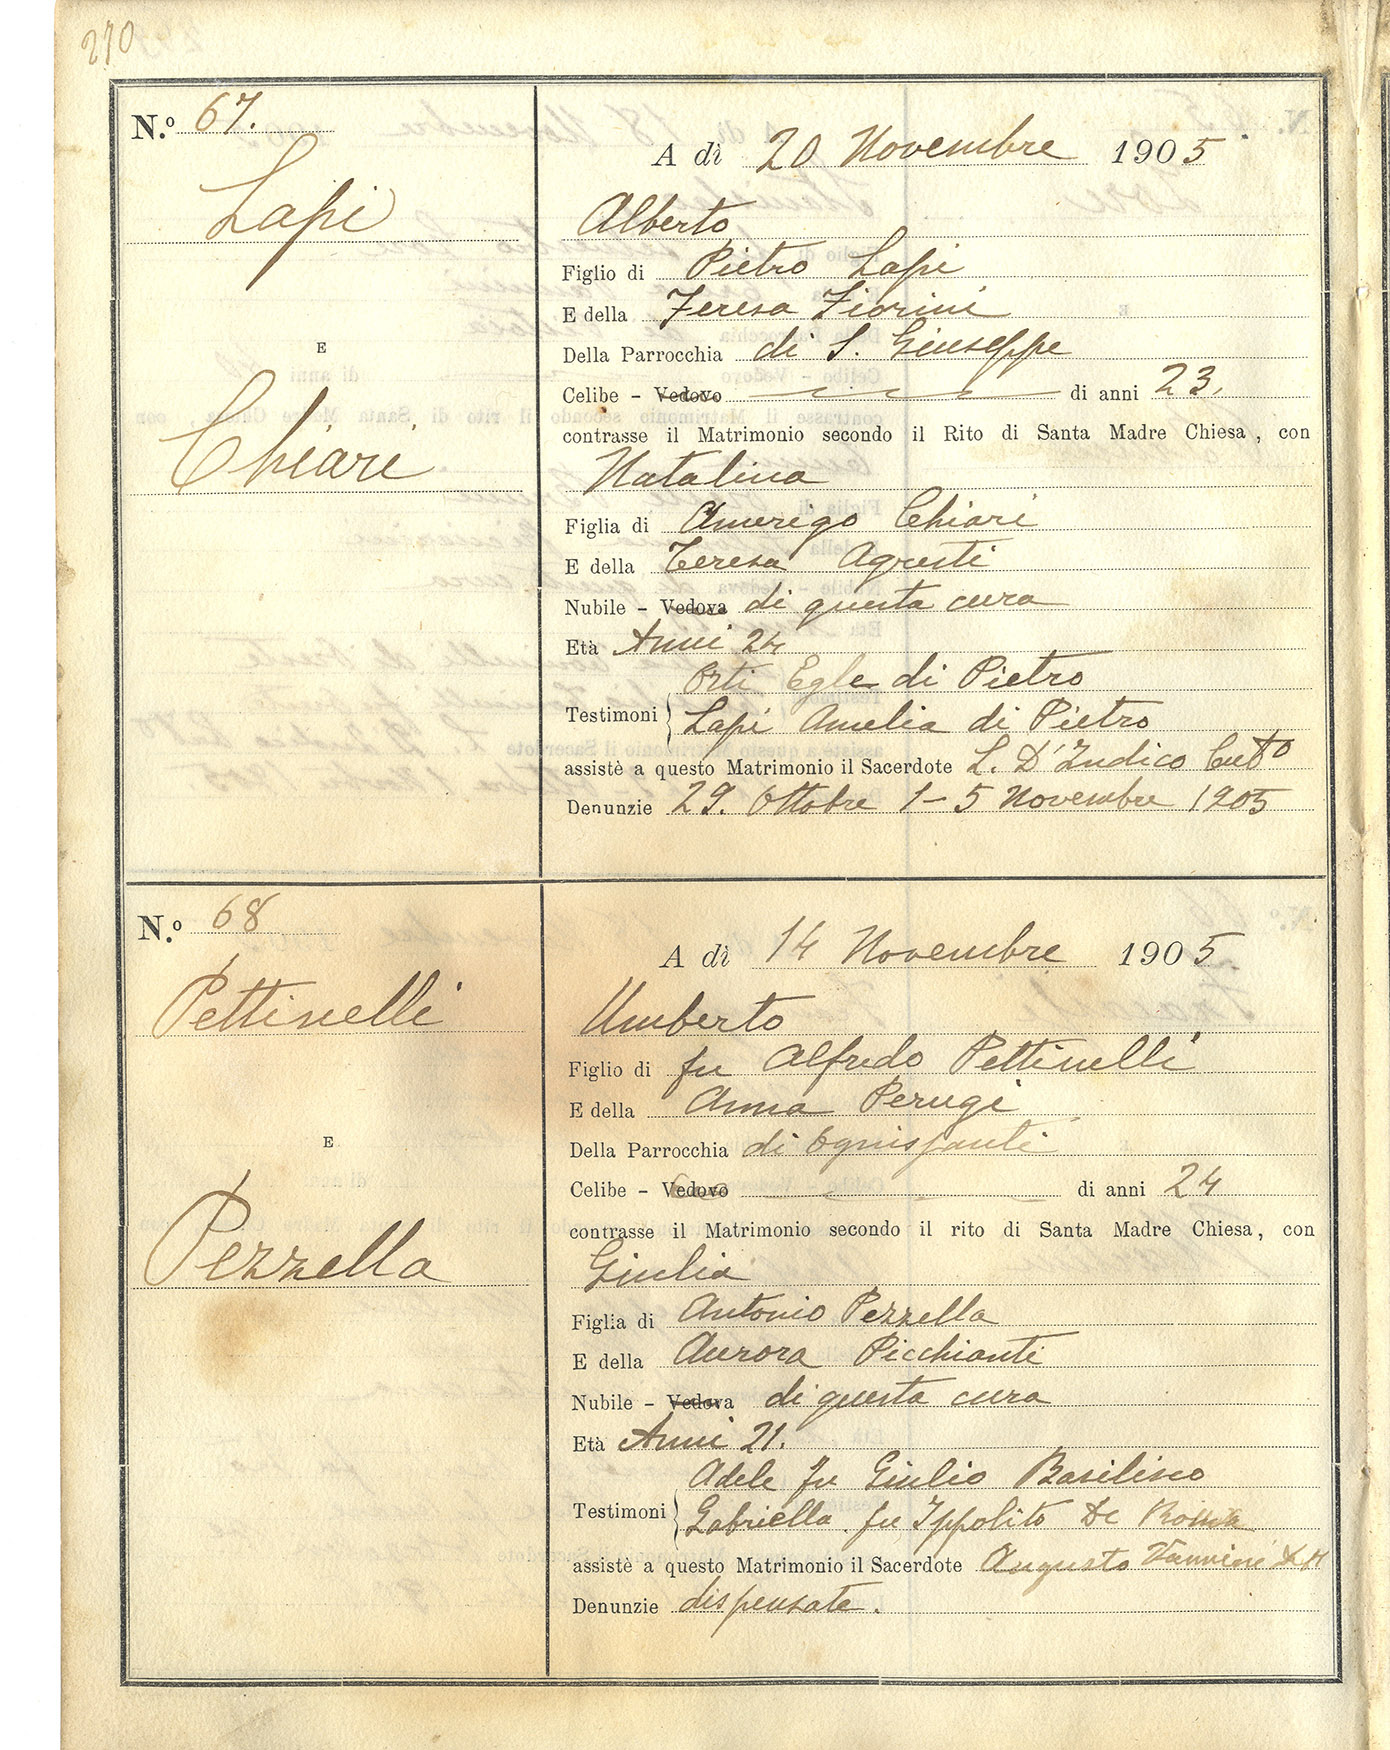 270
N.º 67.
Lapi
E
Chiari
A dì 20 Novembre 1905
Alberto
Figlio di Pietro Lapi
E della Teresa Fiorini
Della Parrocchia di S. Giuseppe
Celibe - Vedovo di anni 23.
contrasse il Matrimonio secondo il Rito di Santa Madre Chiesa, con
Natalina
Figlia di Amerigo Chiari
E della Teresa Agresti
Nubile - Vedova di questa cura
Età Anni 24
Orti Egle di Pietro
Testimoni Lapi Amelia di Pietro
assistè a questo Matrimonio il Sacerdote L. D'Indico Cuto
Denunzie 29. Ottobre 1-5 Novembre 1905
N.º 68
Pettinelli
E
Pezzella
A dì 14 Novembre 1905
Umberto
Figlio di fu Alfredo Pettinelli
E della Anna Perugi
Della Parrocchia di Ognissanti
Celibe - Vedovo di anni 24
contrasse il Matrimonio secondo il rito di Santa Madre Chiesa, con
Giulia
Figlia di Antonio Pezzella
E della Aurora Picchianti
Nubile - Vedova di questa cura
Età Anni 21.
Adele fu Giulio Basilisco
Testimoni Gabriella fu Ippolito De
assistè a questo Matrimonio il Sacerdote Augusto Vannini
Denunzie dispensate.